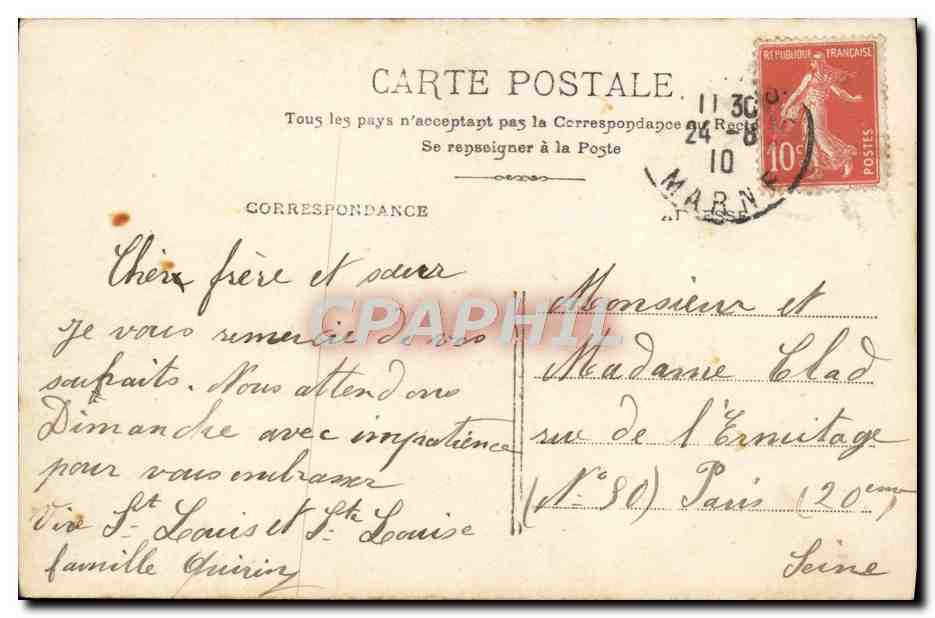 CARTE POSTALE
Tous les pays n'acceptant pas la Correspondance au Recto
Se renseigner à la Poste
RÉPUBLIQUE FRANÇAISE
10c
POSTES
11 30
24 -8
10
MARNE
CORRESPONDANCE
ADRESSE
Chèr frère et sœur
Je vous remercie de vos
souhaits. Nous attendons
Dimanche avec impatience
pour vous embrasser
Vive St Louis et Ste Louise
famille Quirin
Monsieur et
Madame Clad
rue de l'Ermitage
(No 30) Paris (20eme)
Seine
CPAPHIL